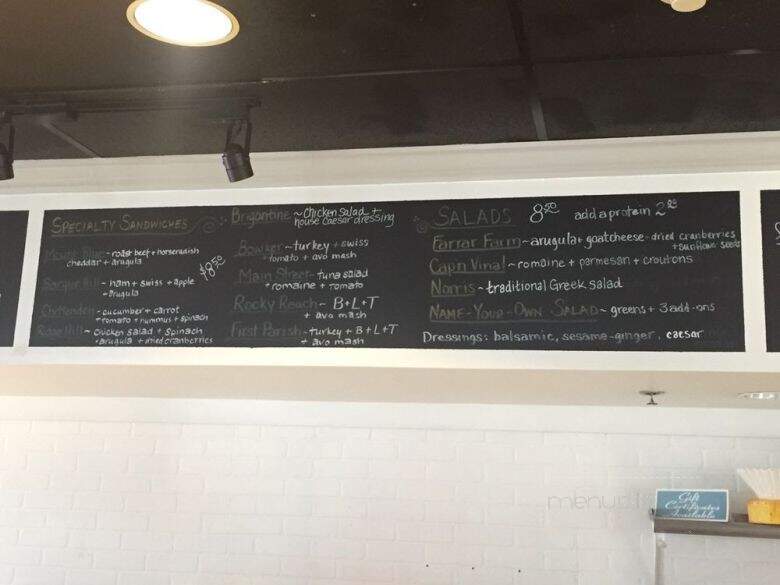 SPECIALTY SANDWICHES
~ roast beef + horseradish
cheddar + arugula
$8.50
~ ham + swiss + apple
+ arugula
Chittenden ~ cucumber + carrot
+ tomato + hummus + spinach
Rose Hill ~ Chicken Salad + Spinach
+ arugula + dried cranberries
Brigantine ~ Chicken Salad +
house Caesar dressing
Bowker ~ turkey + swiss
+ tomato + avo mash
Main Street ~ tuna salad
+ romaine + tomato
Rocky Reach ~ B+L+T
+ avo mash
First Parish ~ turkey + B+L+T
+ avo mash
SALADS 8.50 add a protein
Farrar Farm ~ arugula + goat cheese + dried cranberries
+ sunflower seeds
Cap'n Vinal ~ romaine + parmesan + croutons
Norris ~ traditional Greek salad
NAME-YOUR-OWN SALAD ~ greens + 3 add-ons
Dressings: balsamic, sesame-ginger, caesar
Gift
Certificates
Available
menu